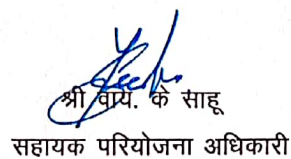 श्री वाय. के साहू
सहायक परियोजना अधिकारी